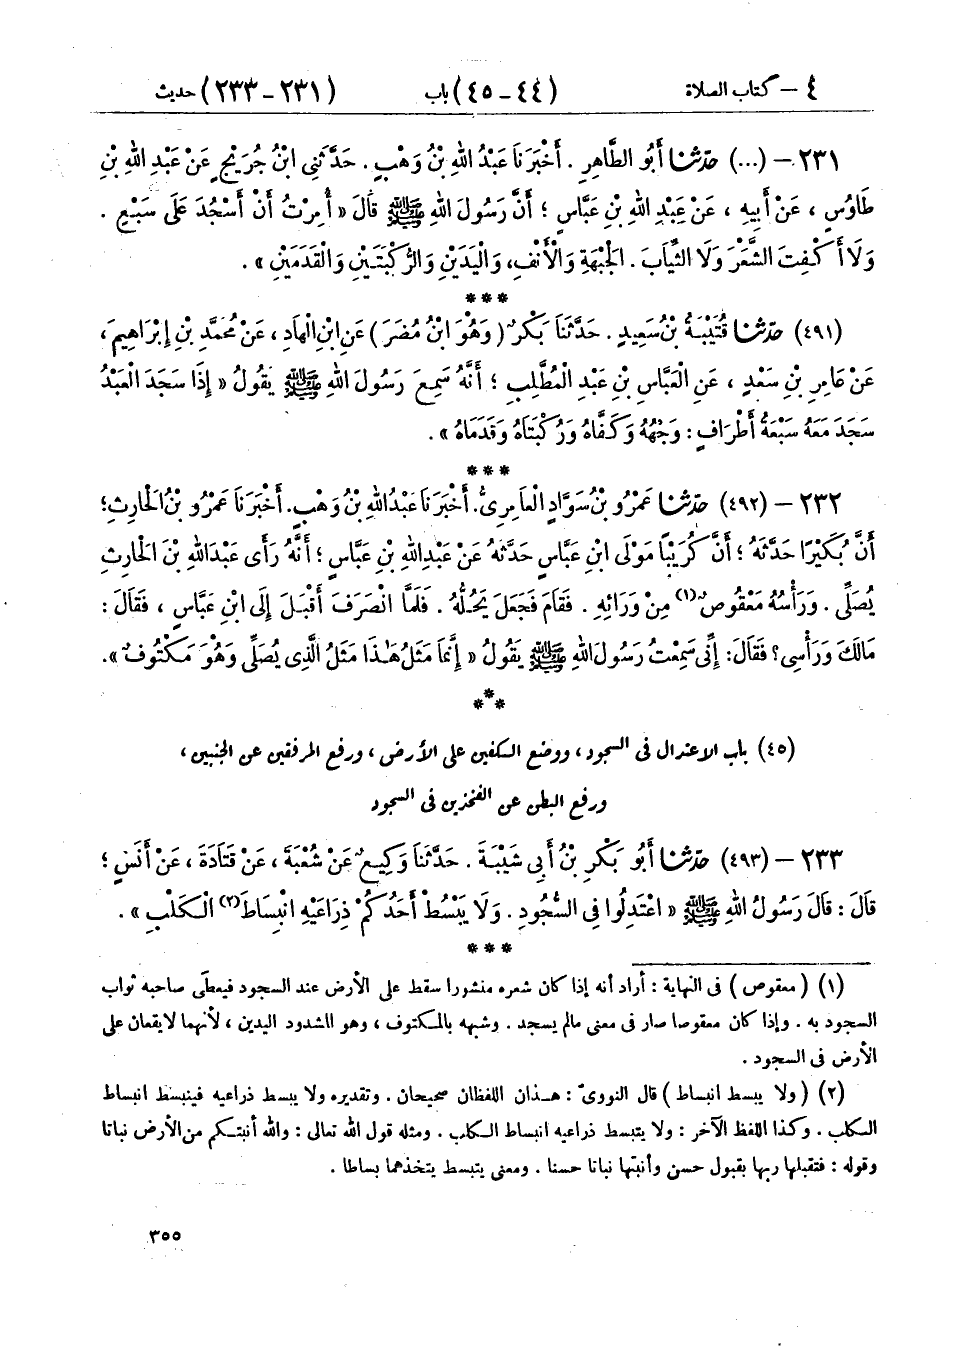 ٤ – كتاب الصلاة (٤٤ – ٤٥) باب (٢٣١ – ٢٣٣) حديث
٢٣١ – (...) حَدَّثَنَا أَبُو الطَّاهِرِ . أَخْبَرَنَا عَبْدُ اللهِ بْنُ وَهْبٍ . حَدَّثَنِي ابْنُ جُرَيْجٍ عَنْ عَبْدِ اللهِ بْنِ
طَاوُسٍ ، عَنْ أَبِيهِ ، عَنْ عَبْدِ اللهِ بْنِ عَبَّاسٍ ؛ أَنَّ رَسُولَ اللهِ ﷺ قَالَ « أُمِرْتُ أَنْ أَسْجُدَ عَلَى سَبْعٍ .
وَلَا أَكْفِتَ الشَّعْرَ وَلَا الثِّيَابَ . الْجَبْهَةِ وَالْأَنْفِ، وَالْيَدَيْنِ وَالرُّكْبَتَيْنِ وَالْقَدَمَيْنِ » .
***
(٤٩١) حَدَّثَنَا قُتَيْبَةُ بْنُ سَعِيدٍ . حَدَّثَنَا بَكْرٌ ( وَهُوَ ابْنُ مُضَرَ ) عَنِ ابْنِ الْهَادِ ، عَنْ مُحَمَّدِ بْنِ إِبْرَاهِيمَ ،
عَنْ عَامِرِ بْنِ سَعْدٍ ، عَنِ الْعَبَّاسِ بْنِ عَبْدِ الْمُطَّلِبِ ؛ أَنَّهُ سَمِعَ رَسُولَ اللهِ ﷺ يَقُولُ « إِذَا سَجَدَ الْعَبْدُ
سَجَدَ مَعَهُ سَبْعَةُ أَطْرَافٍ : وَجْهُهُ وَكَفَّاهُ وَرُكْبَتَاهُ وَقَدَمَاهُ » .
***
٢٣٢ – (٤٩٢) حَدَّثَنَا عَمْرُو بْنُ سَوَّادٍ الْعَامِرِيُّ. أَخْبَرَنَا عَبْدُ اللهِ بْنُ وَهْبٍ. أَخْبَرَنَا عَمْرُو بْنُ الْحَارِثِ؛
أَنَّ بُكَيْرًا حَدَّثَهُ ؛ أَنَّ كُرَيْبًا مَوْلَى ابْنِ عَبَّاسٍ حَدَّثَهُ عَنْ عَبْدِ اللهِ بْنِ عَبَّاسٍ ؛ أَنَّهُ رَأَى عَبْدَ اللهِ بْنَ الْحَارِثِ
يُصَلِّي . وَرَأْسُهُ مَعْقُوصٌ(١) مِنْ وَرَائِهِ . فَقَامَ فَجَعَلَ يَحُلُّهُ . فَلَمَّا انْصَرَفَ أَقْبَلَ إِلَى ابْنِ عَبَّاسٍ ، فَقَالَ :
مَالَكَ وَرَأْسِي؟ فَقَالَ: إِنِّي سَمِعْتُ رَسُولَ اللهِ ﷺ يَقُولُ « إِنَّمَا مَثَلُ هَٰذَا مَثَلُ الَّذِي يُصَلِّي وَهُوَ مَكْتُوفٌ ».
***
(٤٥) باب الاعتدال في السجود ، ووضع الكفين على الأرض ، ورفع المرفقين عن الجنبين ،
ورفع البطن عن الفخذين في السجود
٢٣٣ – (٤٩٣) حَدَّثَنَا أَبُو بَكْرِ بْنُ أَبِي شَيْبَةَ . حَدَّثَنَا وَكِيعٌ عَنْ شُعْبَةَ ، عَنْ قَتَادَةَ ، عَنْ أَنَسٍ ؛
قَالَ : قَالَ رَسُولُ اللهِ ﷺ « اعْتَدِلُوا فِي السُّجُودِ . وَلَا يَبْسُطْ أَحَدُكُمْ ذِرَاعَيْهِ انْبِسَاطَ(٢) الْكَلْبِ » .
***
(١) ( معقوص ) في النهاية : أراد أنه إذا كان شعره منشورا سقط على الأرض عند السجود فيعطَى صاحبه ثواب
السجود به . وإذا كان معقوصا صار في معنى مالم يسجد . وشبهه بالمكتوف ، وهو المشدود اليدين ، لأنهما لا يقعان على
الأرض في السجود .
(٢) ( ولا يبسط انبساط ) قال النووىّ : هذان اللفظان صحيحان . وتقديره ولا يبسط ذراعيه فينبسط انبساط
الكلب . وكذا اللفظ الآخر : ولا يتبسط ذراعيه انبساط الكلب . ومثله قول الله تعالى : والله أنبتكم من الأرض نباتا
وقوله : فتقبلها ربها بقبول حسن وأنبتها نباتا حسنا . ومعنى يتبسط يتخذهما بساطا .
٣٥٥